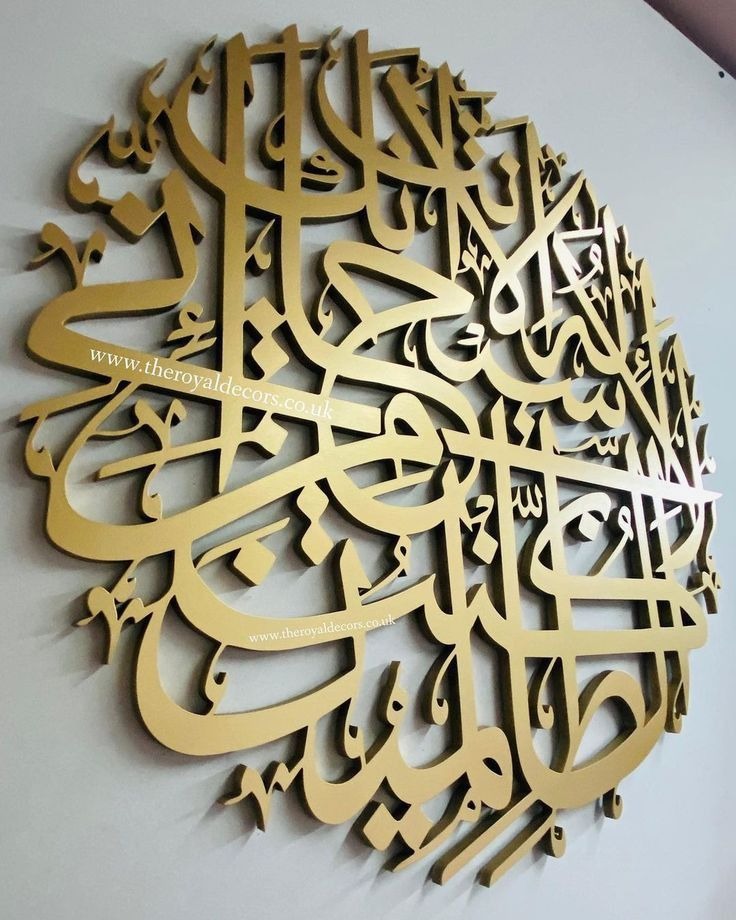 لا إله إلا أنت سبحانك إني كنت من الظالمين
www.theroyaldecors.co.uk
www.theroyaldecors.co.uk